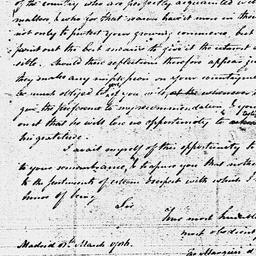 of the country who are perfectly acquainted with
matters, & who for that reason have it more in their
not only to protect your growing commerce, but
point out the best means to give it the utmost
sible. Should these reflections therefore appear just
they make any impression on your countrymen
be much obliged to you will,
give the preference to my recommendation, & you
ured that he will lose no opportunity to
his gratitude.
I avail myself of this opportunity to
to your remembrance, & to assure you that nothing
to the sentiments of esteem & respect with which I
honor of being
Sir
Your most humble
most obedient
Madrid March
Marquis d